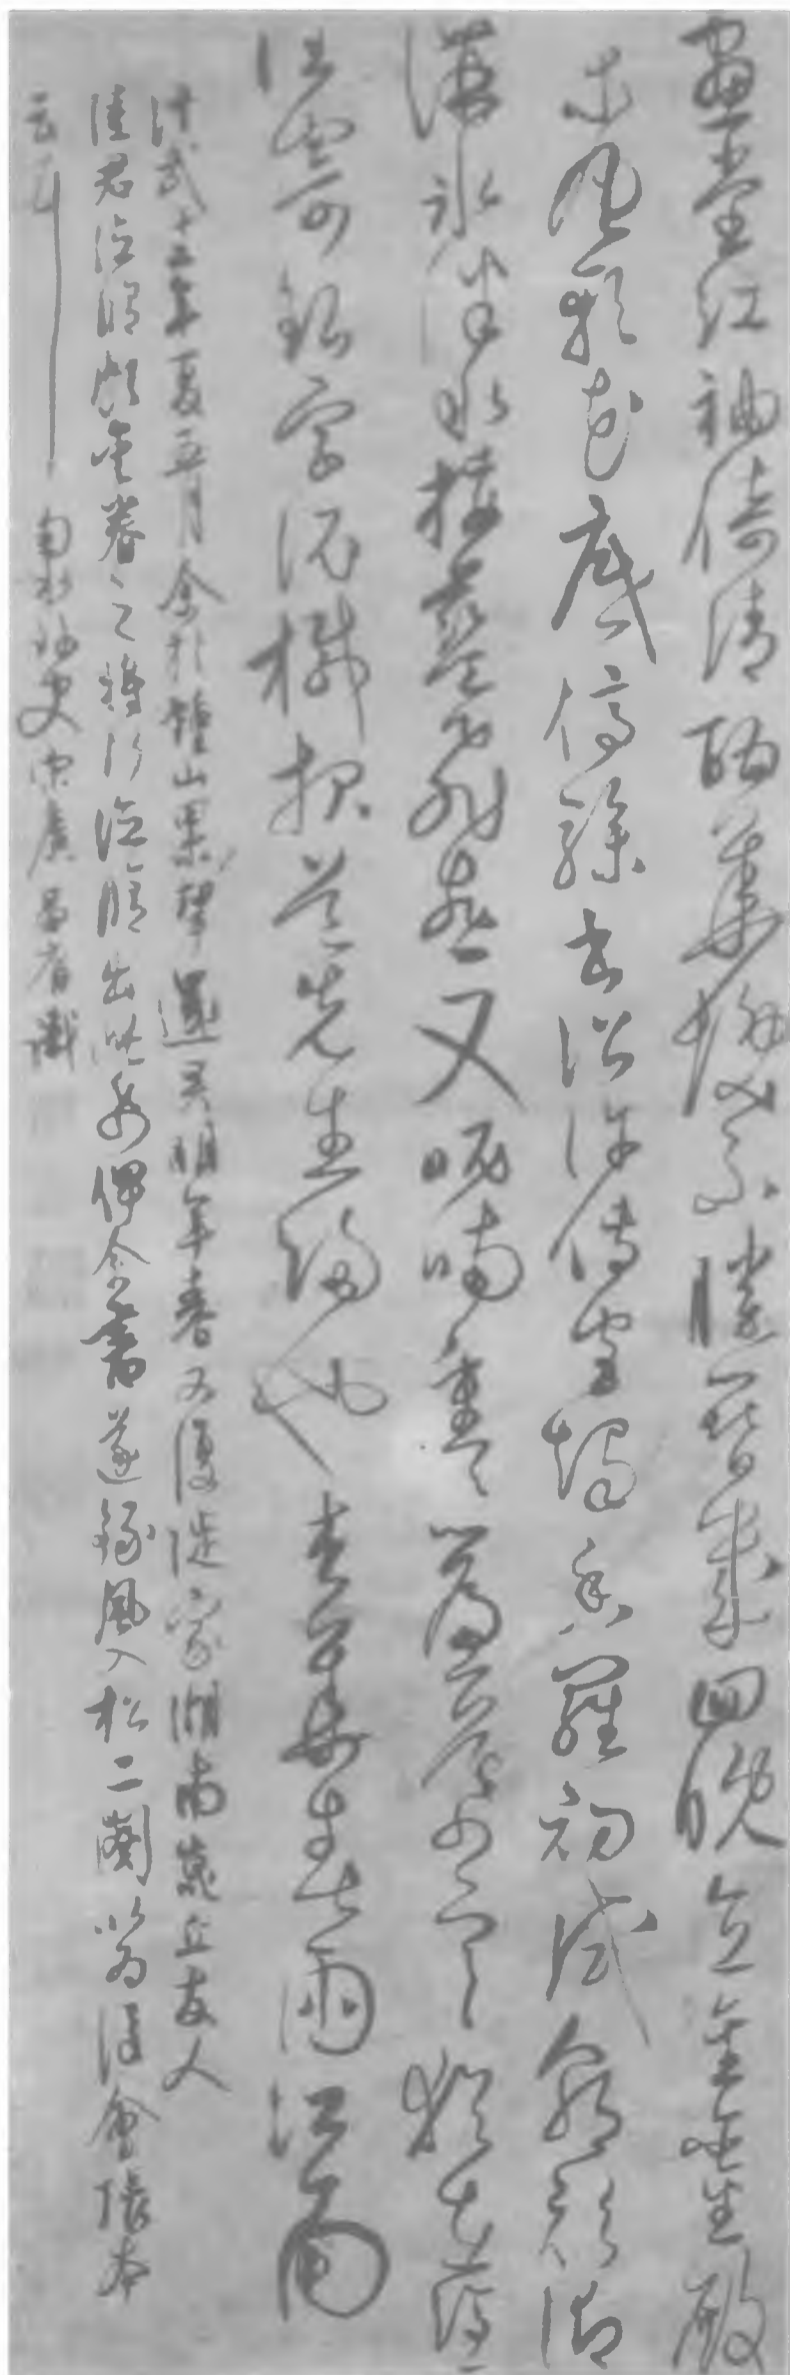 畫堂紅袖倚清酣華髮不勝簪幾回晚直金鑾殿
東風軟花底停驂書詔許傳宮燭香羅初試朝衫御
溝冰泮水挼藍飛燕又呢喃重重簾幕寒猶在憑
誰寄銀字泥緘報道先生歸也杏花春雨江南
洪武十二年夏五月余於鍾山還吳明年春又復徙家湖南友人
陸君頗重眷之將行出此紙俾余書遂錄風入松二闋以為後會張本
云耳 史宋廣昌裔識